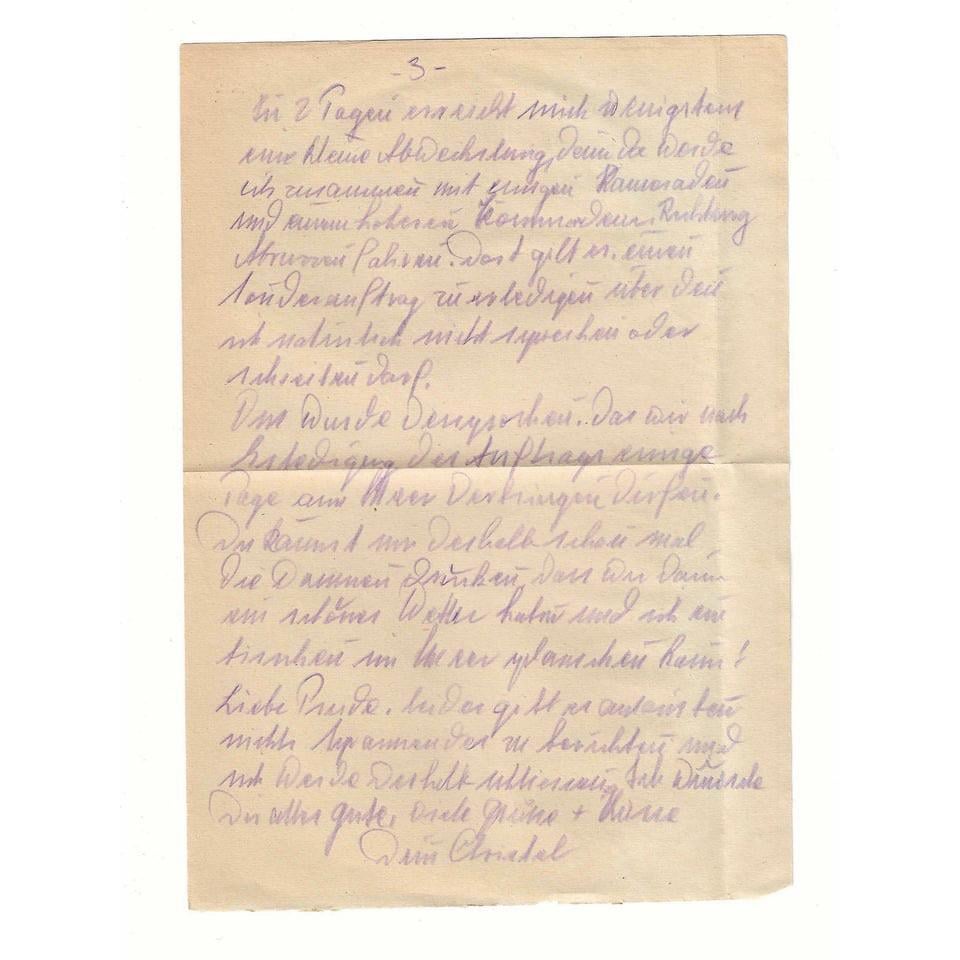 -3-
In 2 Tagen erreicht mich wenigstens
eine kleine Abwechslung, denn da werde
ich zusammen mit einigen Kameraden
und einem höheren Richtung
Abruzzen fahren. Dort gilt es, einen
Sonderauftrag zu erledigen über den
ich natürlich nicht sprechen oder
schreiben darf.
Uns wurde versprochen, das wir nach
Erledigung des Auftrags einige
Tage am Meer verbringen dürfen.
Du kannst mir deshalb schon mal
die Daumen drücken, dass wir dann
ein schönes Wetter haben und ich ein
bisschen im Meer planschen kann!
Liebe leider gibt es ansonsten
nichts spannendes zu berichten und
ich werde deshalb schliessen. Ich wünsche
Dir alles gute, viele Grüße + Küsse
Dein Christel